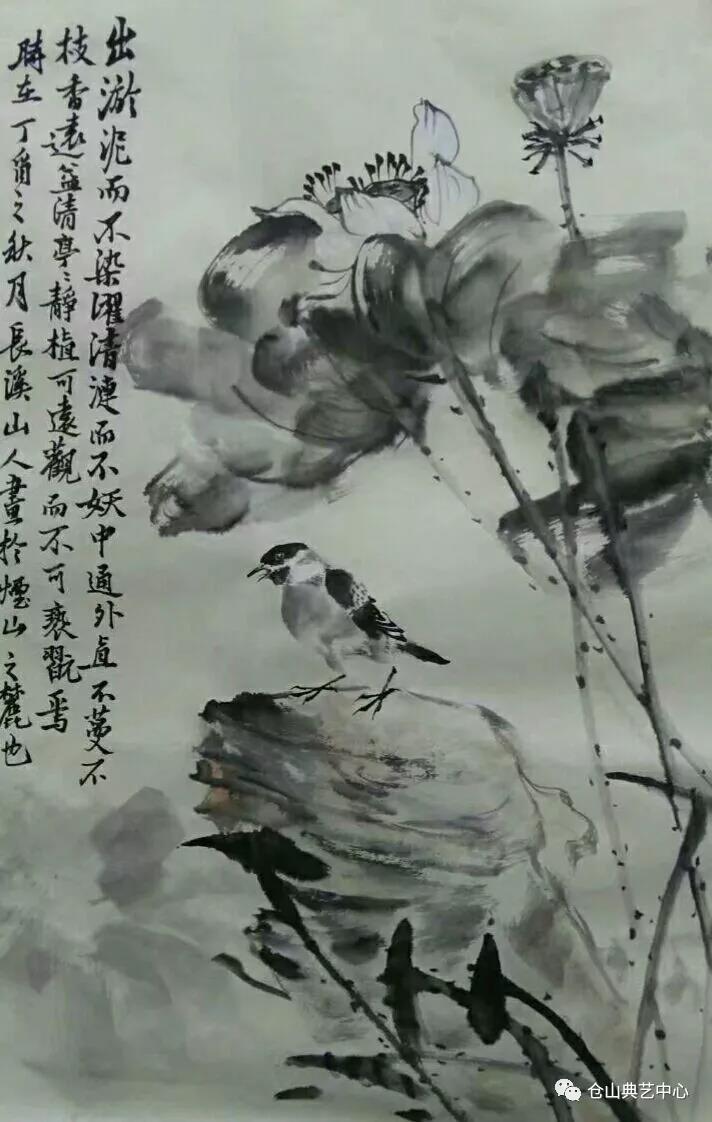 出淤泥而不染濯清漣而不妖中通外直不蔓不
枝香遠益清亭〻静植可遠觀而不可褻翫焉
時在丁酉之秋月長溪山人畫於煙山之麓也
仓山典艺中心